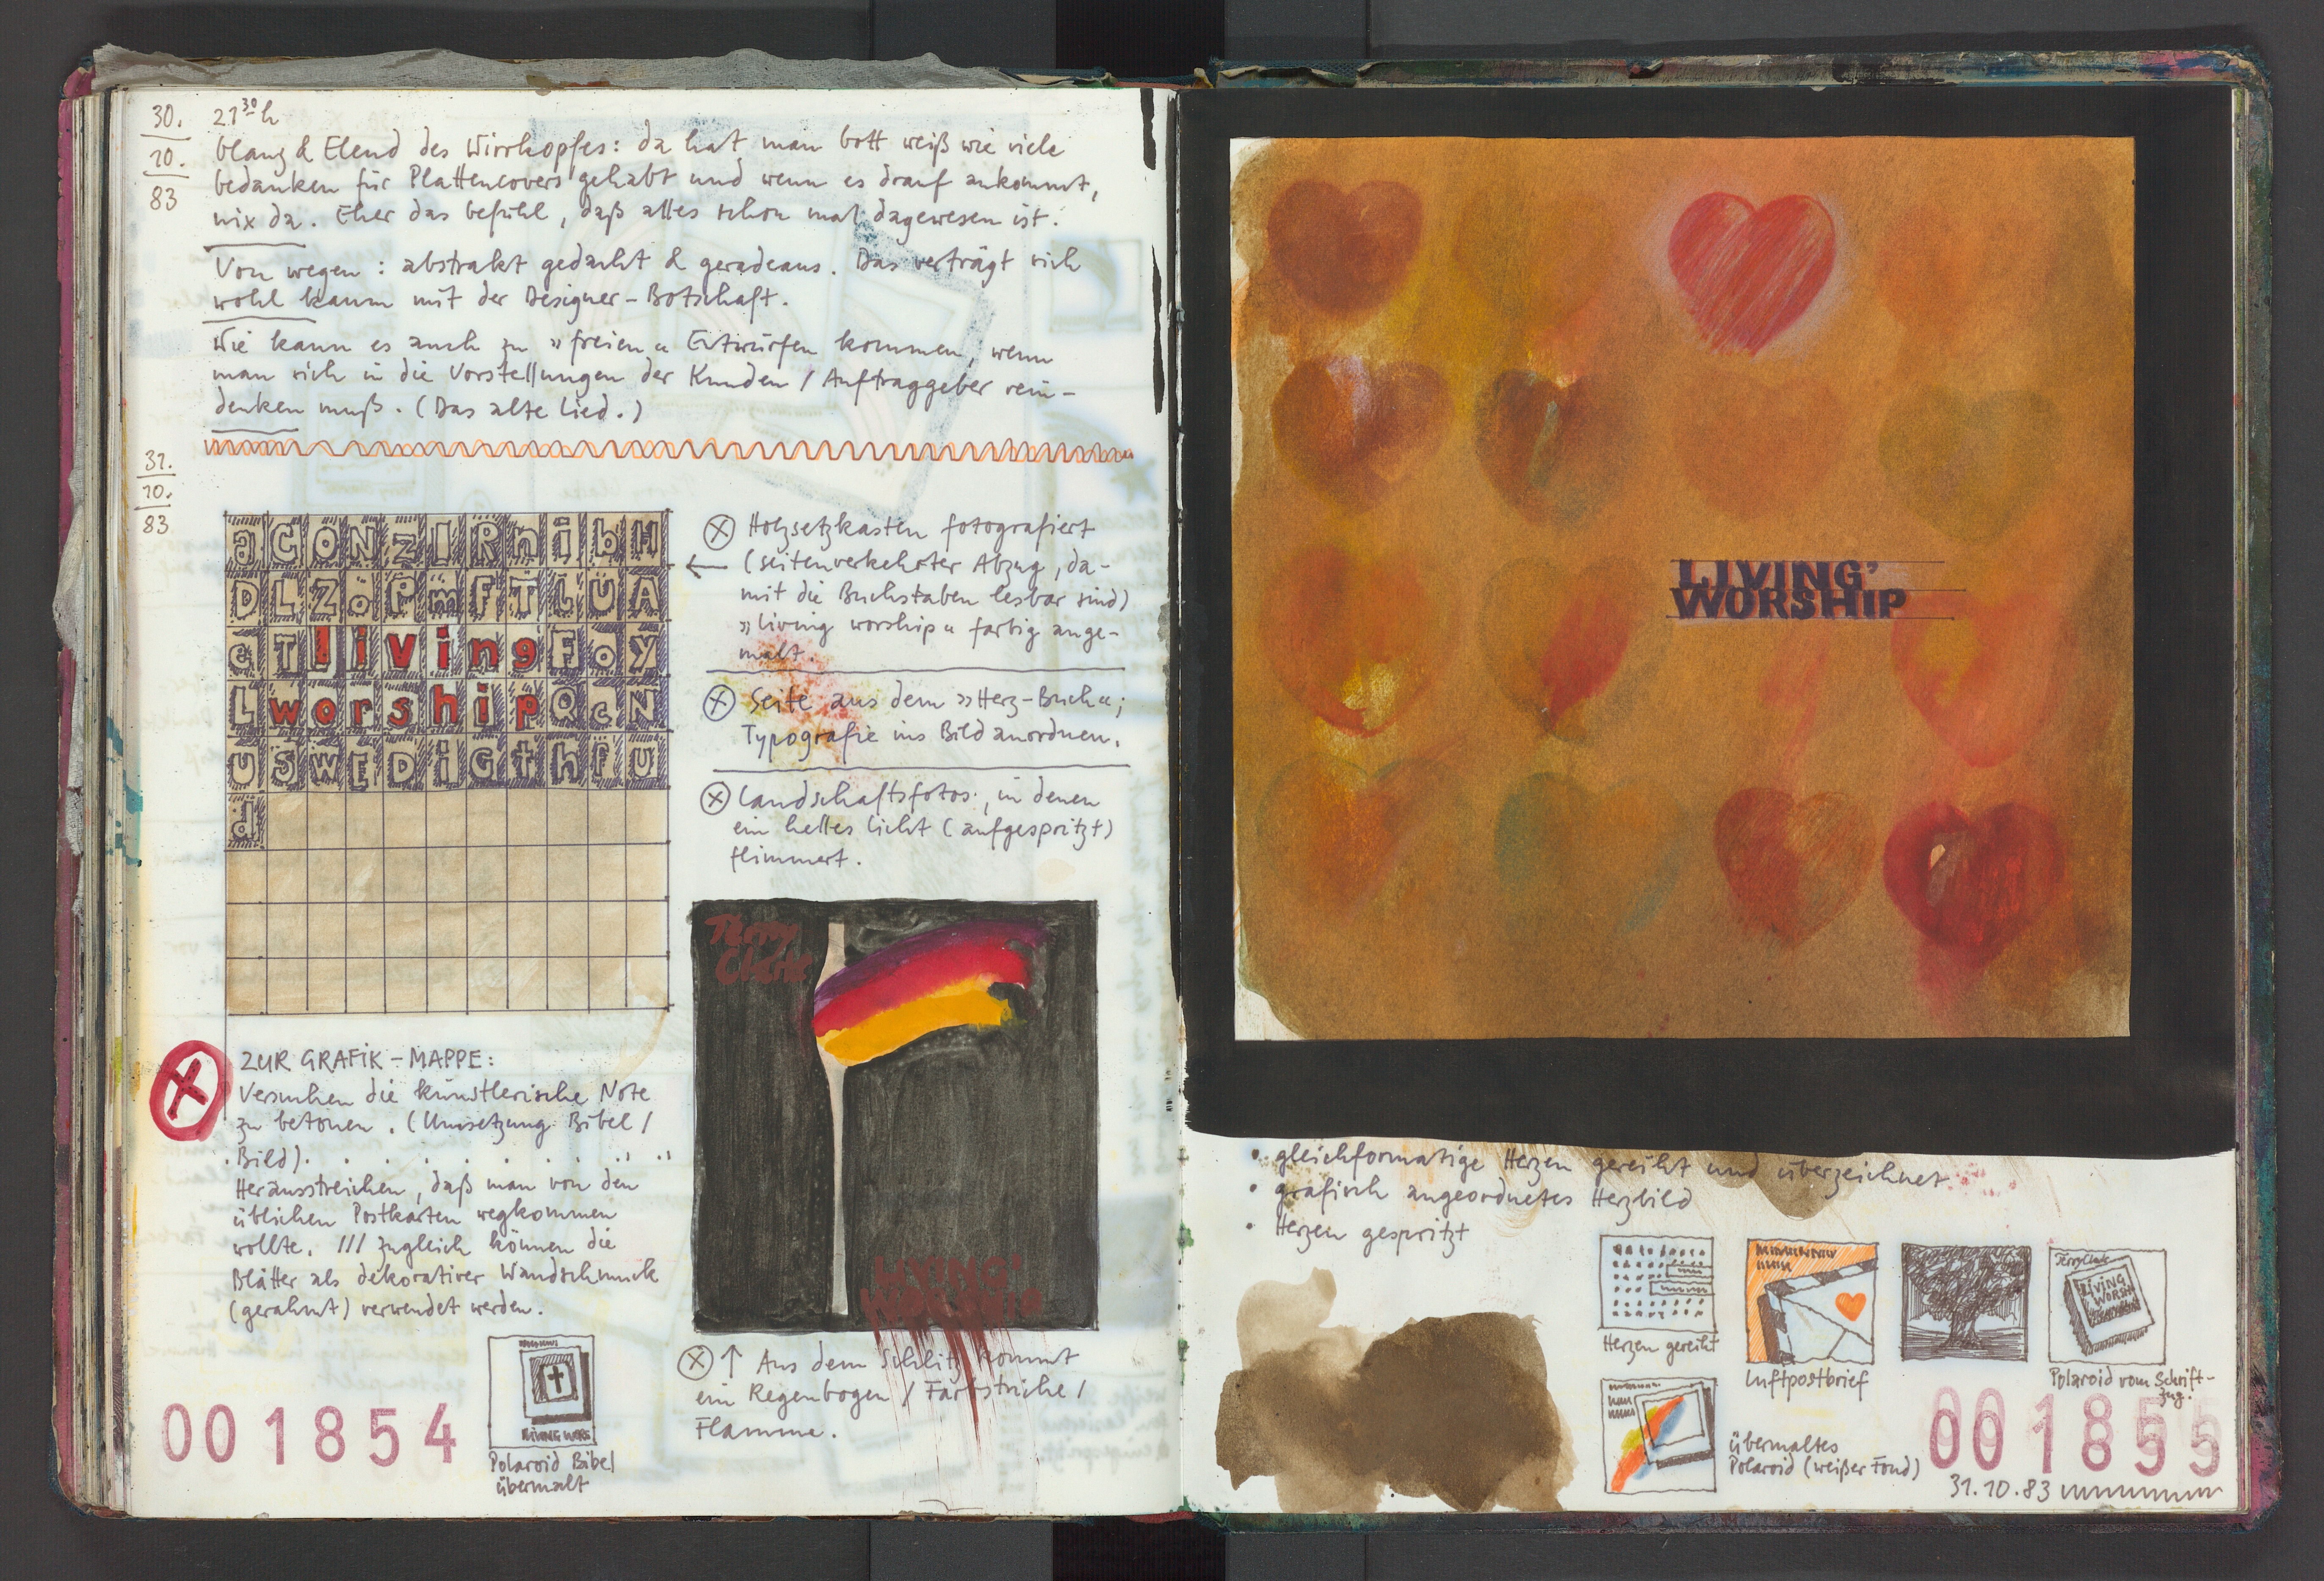 30.
10.
83
21³⁰h
Glanz & Elend des Wirrkopfes: da hat man Gott weiß wie viele
Gedanken für Plattencovers gehabt und wenn es drauf ankommt,
nix da. Eher das Gefühl, daß alles schon mal dagewesen ist.
Von wegen: abstrakt gedacht & geradeaus. Das verträgt sich
wohl kaum mit der Designer-Botschaft.
Wie kann es auch zu »freien« Entwürfen kommen, wenn
man sich in die Vorstellungen der Kunden / Auftraggeber rein-
denken muß. (Das alte Lied.)
31.
10.
83
a C O N Z I R n i b H
D L Z o P m F T L Ü A
e T l i v i n g F o y
L w o r s h i p Q c N
U S W E D i G t h f U
d
Holzsetzkasten fotografiert
(seitenverkehrter Abzug, da-
mit die Buchstaben lesbar sind)
»living worship« farbig ange-
malt.
Seite aus dem »Herz-Buch«;
Typografie ins Bild anordnen.
Landschaftsfotos, in denen
ein helles Licht (aufgespritzt)
flimmert.
Terry
Clark
LIVING'
WORSHIP
Aus dem Schlitz kommt
ein Regenbogen / Farbstriche /
Flamme.
ZUR GRAFIK-MAPPE:
Versuchen die künstlerische Note
zu betonen. (Umsetzung Bibel /
Bild).
Herausstreichen, daß man von den
üblichen Postkarten wegkommen
wollte. /// Zugleich können die
Blätter als dekorativer Wandschmuck
(gerahmt) verwendet werden.
LIVING WORS
Polaroid Bibel
übermalt
001854
LIVING'
WORSHIP
• gleichformatige Herzen gereiht und überzeichnet
• grafisch angeordnetes Herzbild
• Herzen gespritzt
Herzen gereiht
Luftpostbrief
Terry Clark
LIVING
WORSH
Polaroid vom Schrift-
zug.
übermaltes
Polaroid (weißer Fond)
001855
31.10.83